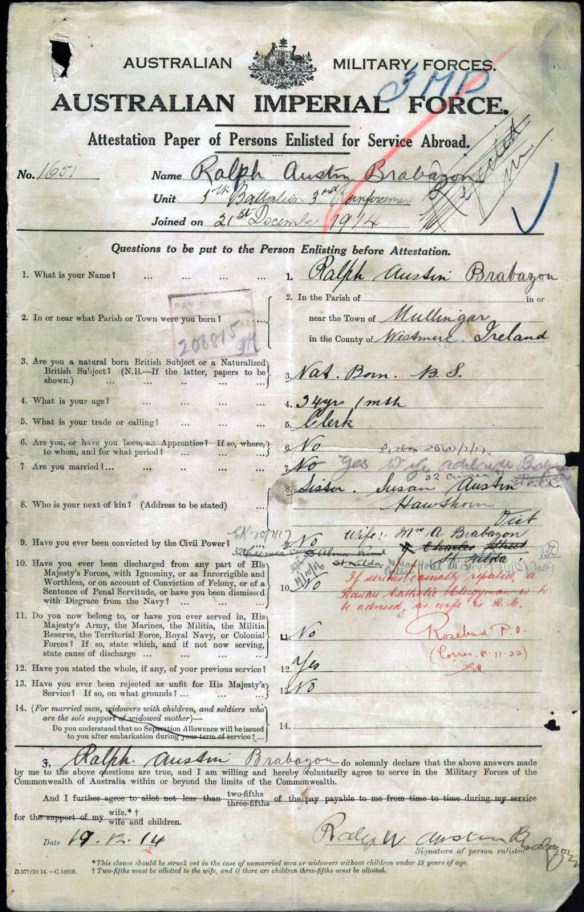 AUSTRALIAN MILITARY FORCES.
3 MD
AUSTRALIAN IMPERIAL FORCE.
Attestation Paper of Persons Enlisted for Service Abroad.
No. 1651 Name Ralph Austin Brabazon
Unit 5th Battalion 3rd Reinforcement
Joined on 21st December 1914
Questions to be put to the Person Enlisting before Attestation.
1. What is your Name? ... ... ... ... 1. Ralph Austin Brabazon
2. In or near what Parish or Town were you born? ... 2. In the Parish of in or
near the Town of Mullingar
in the County of Westmere, Ireland
206815
3. Are you a natural born British Subject or a Naturalized
British Subject? (N.B.—If the latter, papers to be
shown.) ... ... ... ... 3. Nat. Born. B. S.
4. What is your age? ... ... ... ... 4. 34 yrs 1 mth
5. What is your trade or calling? ... ... ... 5. Clerk
6. Are you, or have you been, an Apprentice? If so, where,
to whom, and for what period? ... ... 6. No
7. Are you married? ... ... ... ... 7. No Yes Wife Adelaide
8. Who is your next of kin? (Address to be stated) ... 8. Sister. Susan Austin
Hawthorn
Vict
Wife:- Mrs A Brabazon
St Kilda
9. Have you ever been convicted by the Civil Power? ... 9. No
10. Have you ever been discharged from any part of His
Majesty's Forces, with Ignominy, or as Incorrigible and
Worthless, or on account of Conviction of Felony, or of a
Sentence of Penal Servitude, or have you been dismissed
with Disgrace from the Navy? ... ... 10. No
If serious casualty reported, a
Roman Catholic Clergyman is to
be advised, as wife is R.C.
Rosebud P.O
(Corres. 8.11.22)
11. Do you now belong to, or have you ever served in, His
Majesty's Army, the Marines, the Militia, the Militia
Reserve, the Territorial Force, Royal Navy, or Colonial
Forces? If so, state which, and if not now serving,
state cause of discharge ... ... ... 11. No
12. Have you stated the whole, if any, of your previous service? 12. Yes
13. Have you ever been rejected as unfit for His Majesty's
Service? If so, on what grounds? ... ... 13. No
14. (For married men, widowers with children, and soldiers who
are the sole support of widowed mother)—
Do you understand that no Separation Allowance will be issued
to you after embarkation during your term of service? ... 14.
3, Ralph Austin Brabazon do solemnly declare that the above answers made
by me to the above questions are true, and I am willing and hereby voluntarily agree to serve in the Military Forces of the
Commonwealth of Australia within or beyond the limits of the Commonwealth.
And I further agree to allot not less than two-fifths three-fifths of the pay payable to me from time to time during my service
for the support of my wife.* † wife and children.
Date 19.12.14 Ralph Austin Brabazon
Signature of person enlisted
* This clause should be struck out in the case of unmarried men or widowers without children under 18 years of age.
† Two-fifths must be allotted to the wife, and if there are children three-fifths must be allotted.